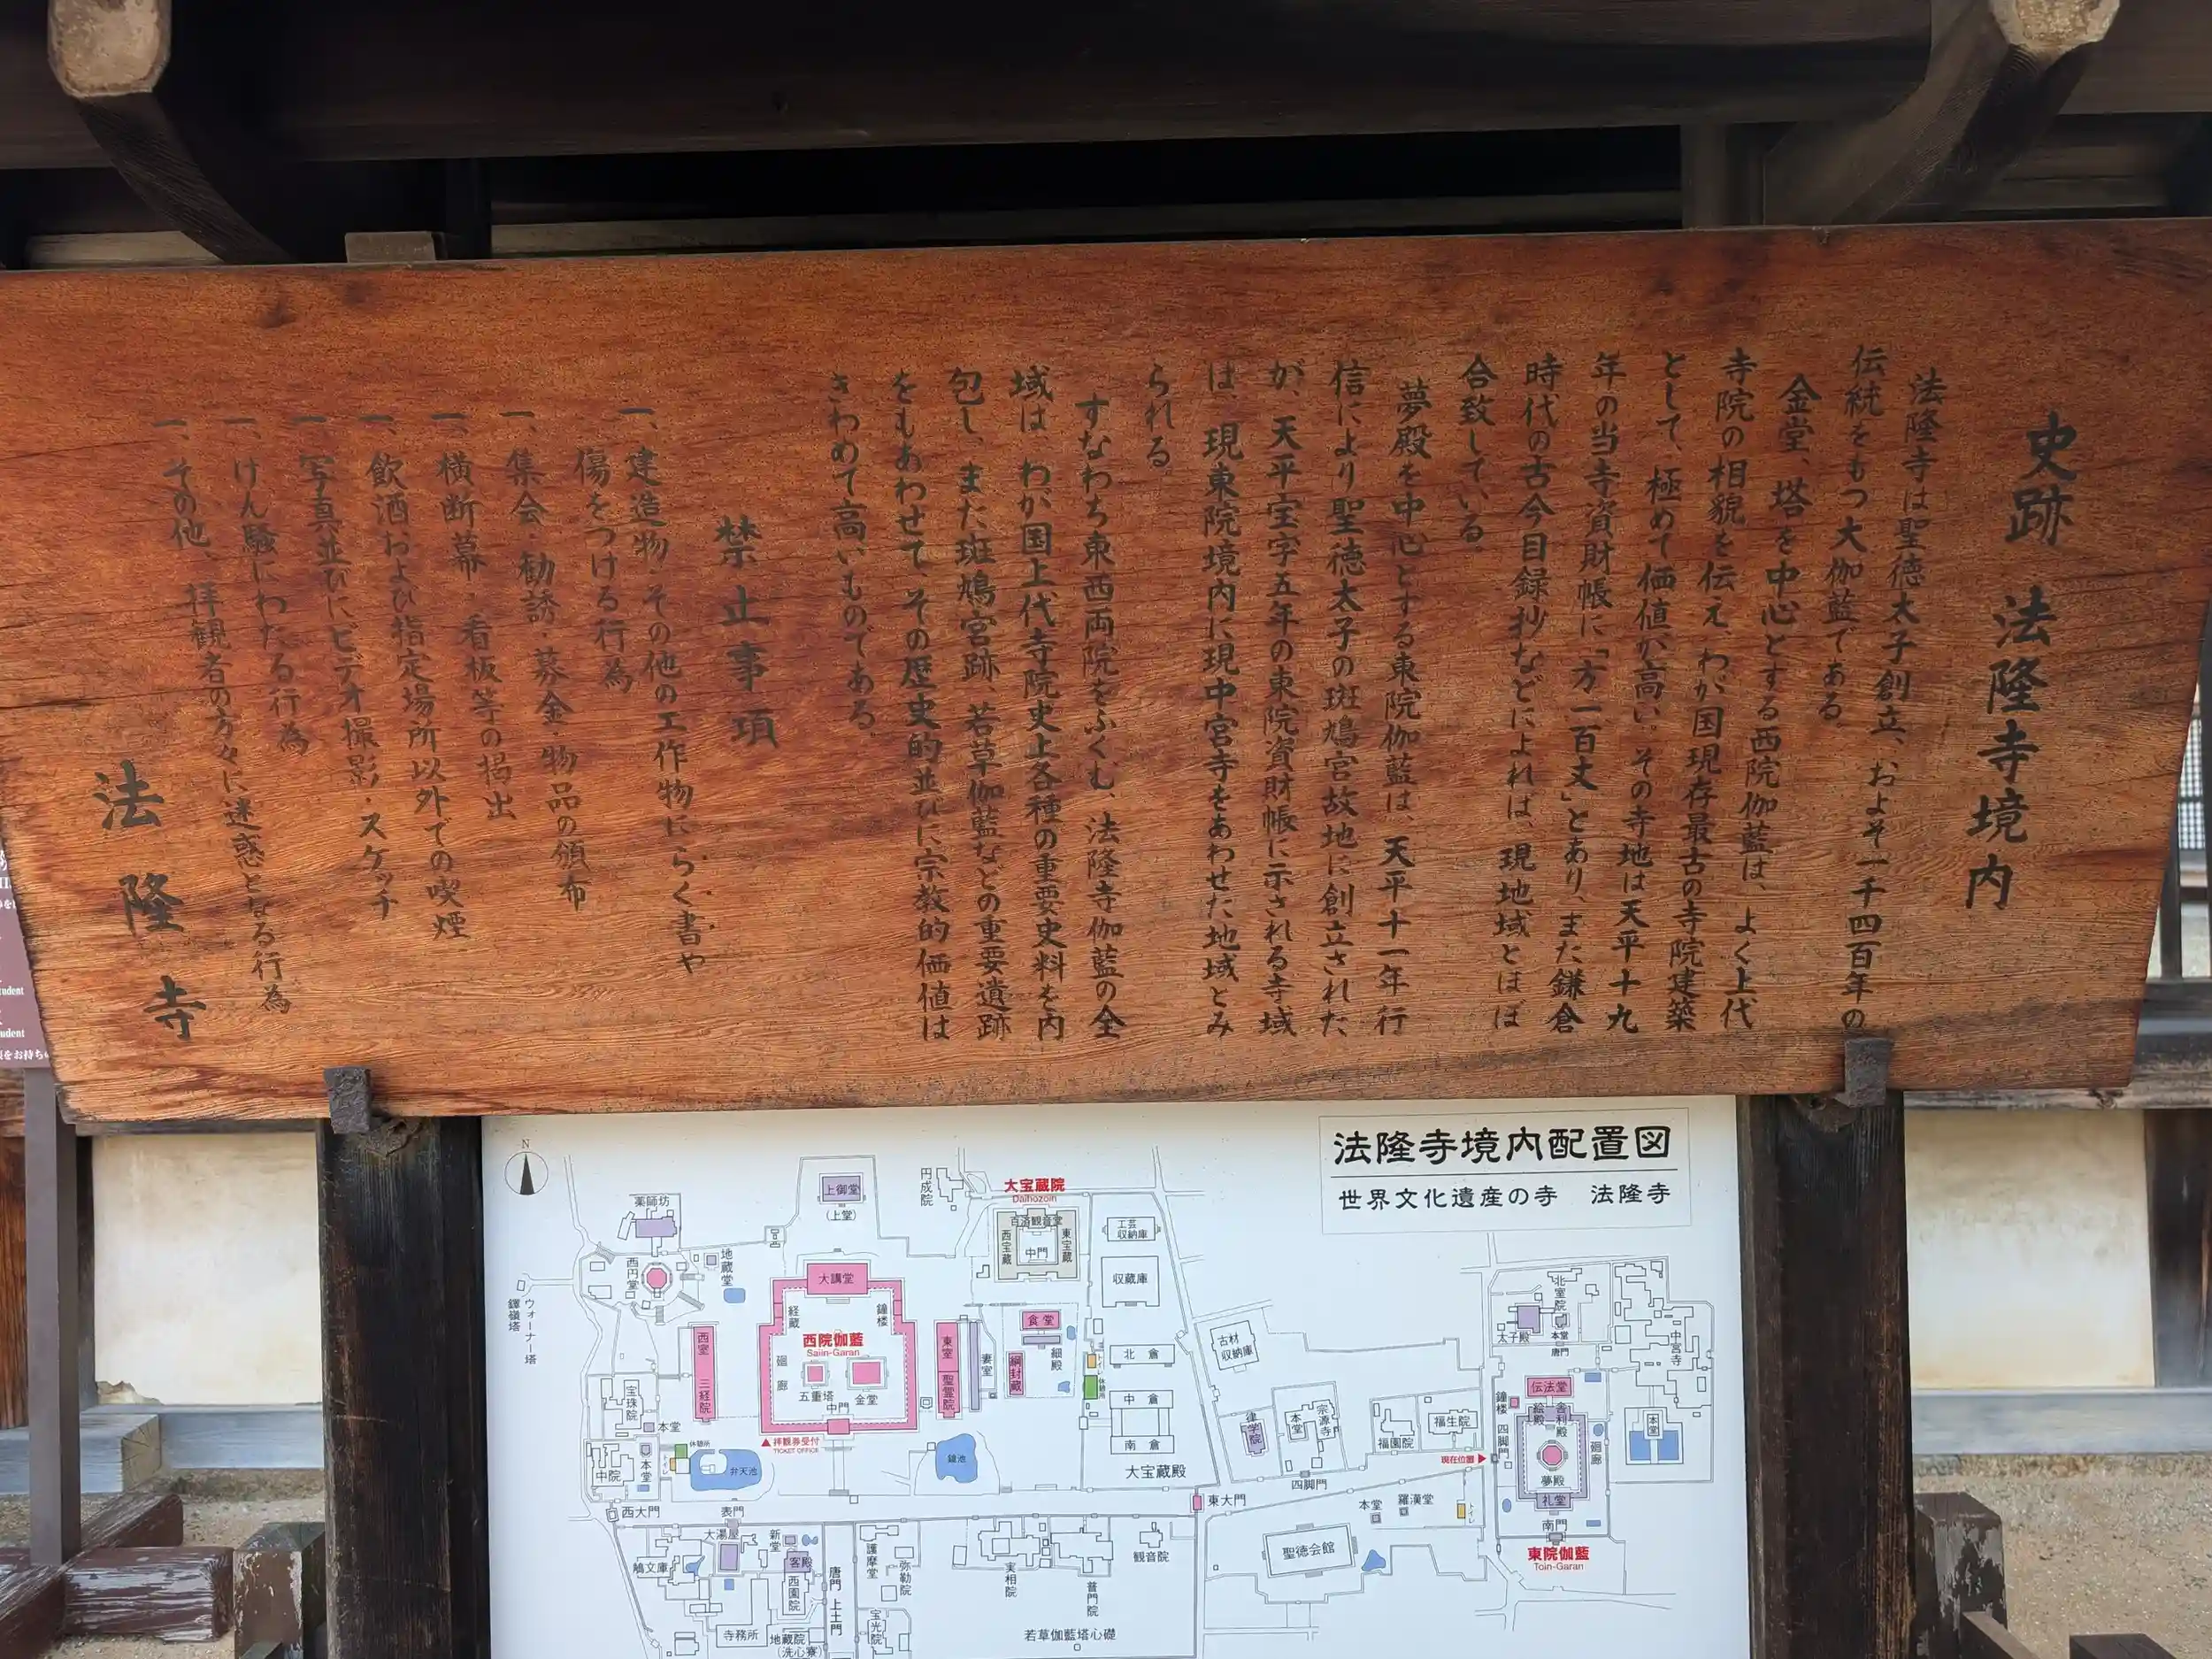 史跡 法隆寺境内
法隆寺は聖徳太子創立、およそ一千四百年の
伝統をもつ大伽藍である
金堂、塔を中心とする西院伽藍は、よく上代
寺院の相貌を伝え、わが国現存最古の寺院建築
として、極めて価値が高い。その寺地は天平十九
年の当寺資財帳に「方一百丈」とあり、また鎌倉
時代の古今目録抄などによれば、現地域とほぼ
合致している。
夢殿を中心とする東院伽藍は、天平十一年行
信により聖徳太子の斑鳩宮故地に創立された
が、天平宝字五年の東院資財帳に示される寺域
は、現東院境内に現中宮寺をあわせた地域とみ
られる
すなわち東西両院をふくむ、法隆寺伽藍の全
域は、わが国上代寺院史上各種の重要史料を内
包し、また斑鳩宮跡、若草伽藍などの重要遺跡
をもあわせて、その歴史的並びに宗教的価値は
きわめて高いものである。
禁止事項
一、建造物・その他の工作物にらく書や
傷をつける行為
一、集会・勧誘・募金・物品の頒布
一、横断幕・看板等の掲出
一、飲酒および指定場所以外での喫煙
一、写真並びにビデオ撮影・スケッチ
一、けん騒にわたる行為
一、その他、拝観者の方々に迷惑となる行為
法隆寺
法隆寺境内配置図
世界文化遺産の寺 法隆寺
N
薬師坊
上御堂
(上堂)
円成院
大宝蔵院
Daihozoin
百済観音堂
西宝蔵
中門
東宝蔵
工芸収納庫
収蔵庫
西円堂
地蔵堂
大講堂
経蔵
鐘楼
西院伽藍
Saiin-Garan
廻廊
五重塔
金堂
中門
ウォーナー塔
鐸嶺塔
西室
三経院
東室
聖霊院
妻室
食堂
細殿
綱封蔵
トイレ
休憩所
北倉
中倉
南倉
大宝蔵殿
古材収納庫
宝珠院
本堂
中院
本堂
休憩所
トイレ
弁天池
鏡池
拝観券受付
TICKET OFFICE
律学院
本堂
宗源寺
四脚門
福園院
福生院
現在位置
北室院
太子殿
本堂
唐門
中宮寺
本堂
伝法堂
鐘楼
絵殿
舎利殿
四脚門
廻廊
夢殿
礼堂
南門
東院伽藍
Toin-Garan
西大門
表門
東大門
本堂
羅漢堂
トイレ
聖徳会館
大湯屋
新堂
客殿
西園院
鳩文庫
寺務所
地蔵院
(洗心寮)
唐門
上土門
護摩堂
弥勒院
宝光院
実相院
普門院
観音院
若草伽藍塔心礎
udent
udent